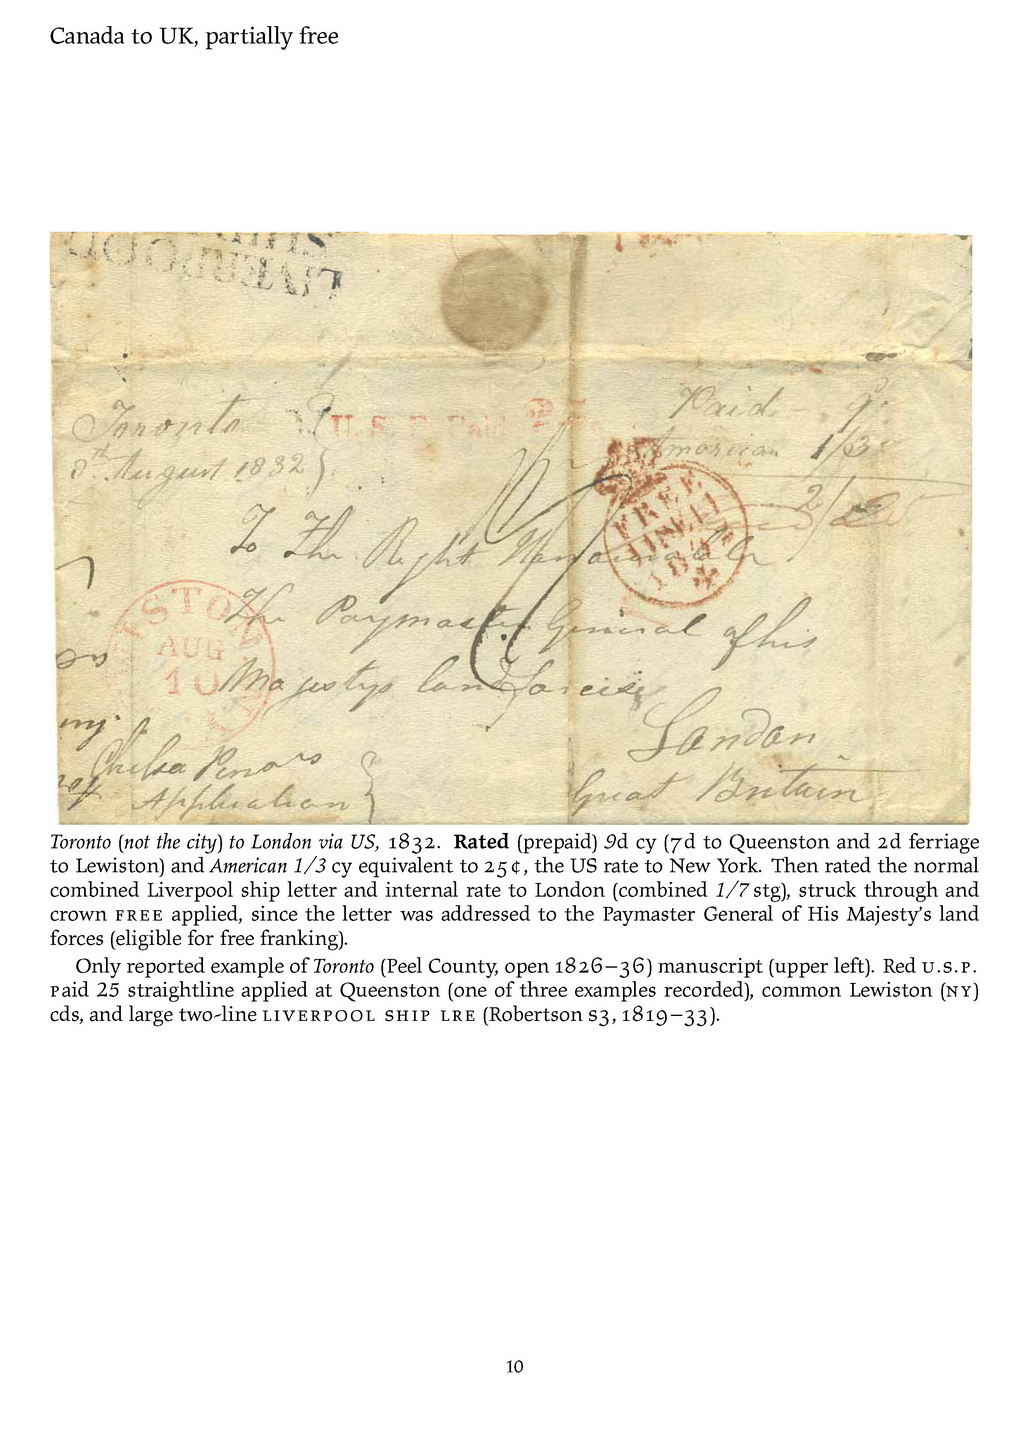 Canada to UK, partially free
Toronto
8th August 1832
U.S.P. Paid
Paid 9d
American 1/3
2/
FREE
1832
To The Right Honourable
The Paymaster General of his
Majestys land forcise
London
Great Britain
LEWISTON
AUG
10
Chelsa
Application
LIVERPOOL
SHIP
Toronto (not the city) to London via US, 1832. Rated (prepaid) 9d cy (7d to Queenston and 2d ferriage
to Lewiston) and American 1/3 cy equivalent to 25¢, the US rate to New York. Then rated the normal
combined Liverpool ship letter and internal rate to London (combined 1/7 stg), struck through and
crown FREE applied, since the letter was addressed to the Paymaster General of His Majesty's land
forces (eligible for free franking).
Only reported example of Toronto (Peel County, open 1826–36) manuscript (upper left). Red U.S.P.
Paid 25 straightline applied at Queenston (one of three examples recorded), common Lewiston (NY)
cds, and large two-line LIVERPOOL SHIP LRE (Robertson S3, 1819–33).
10